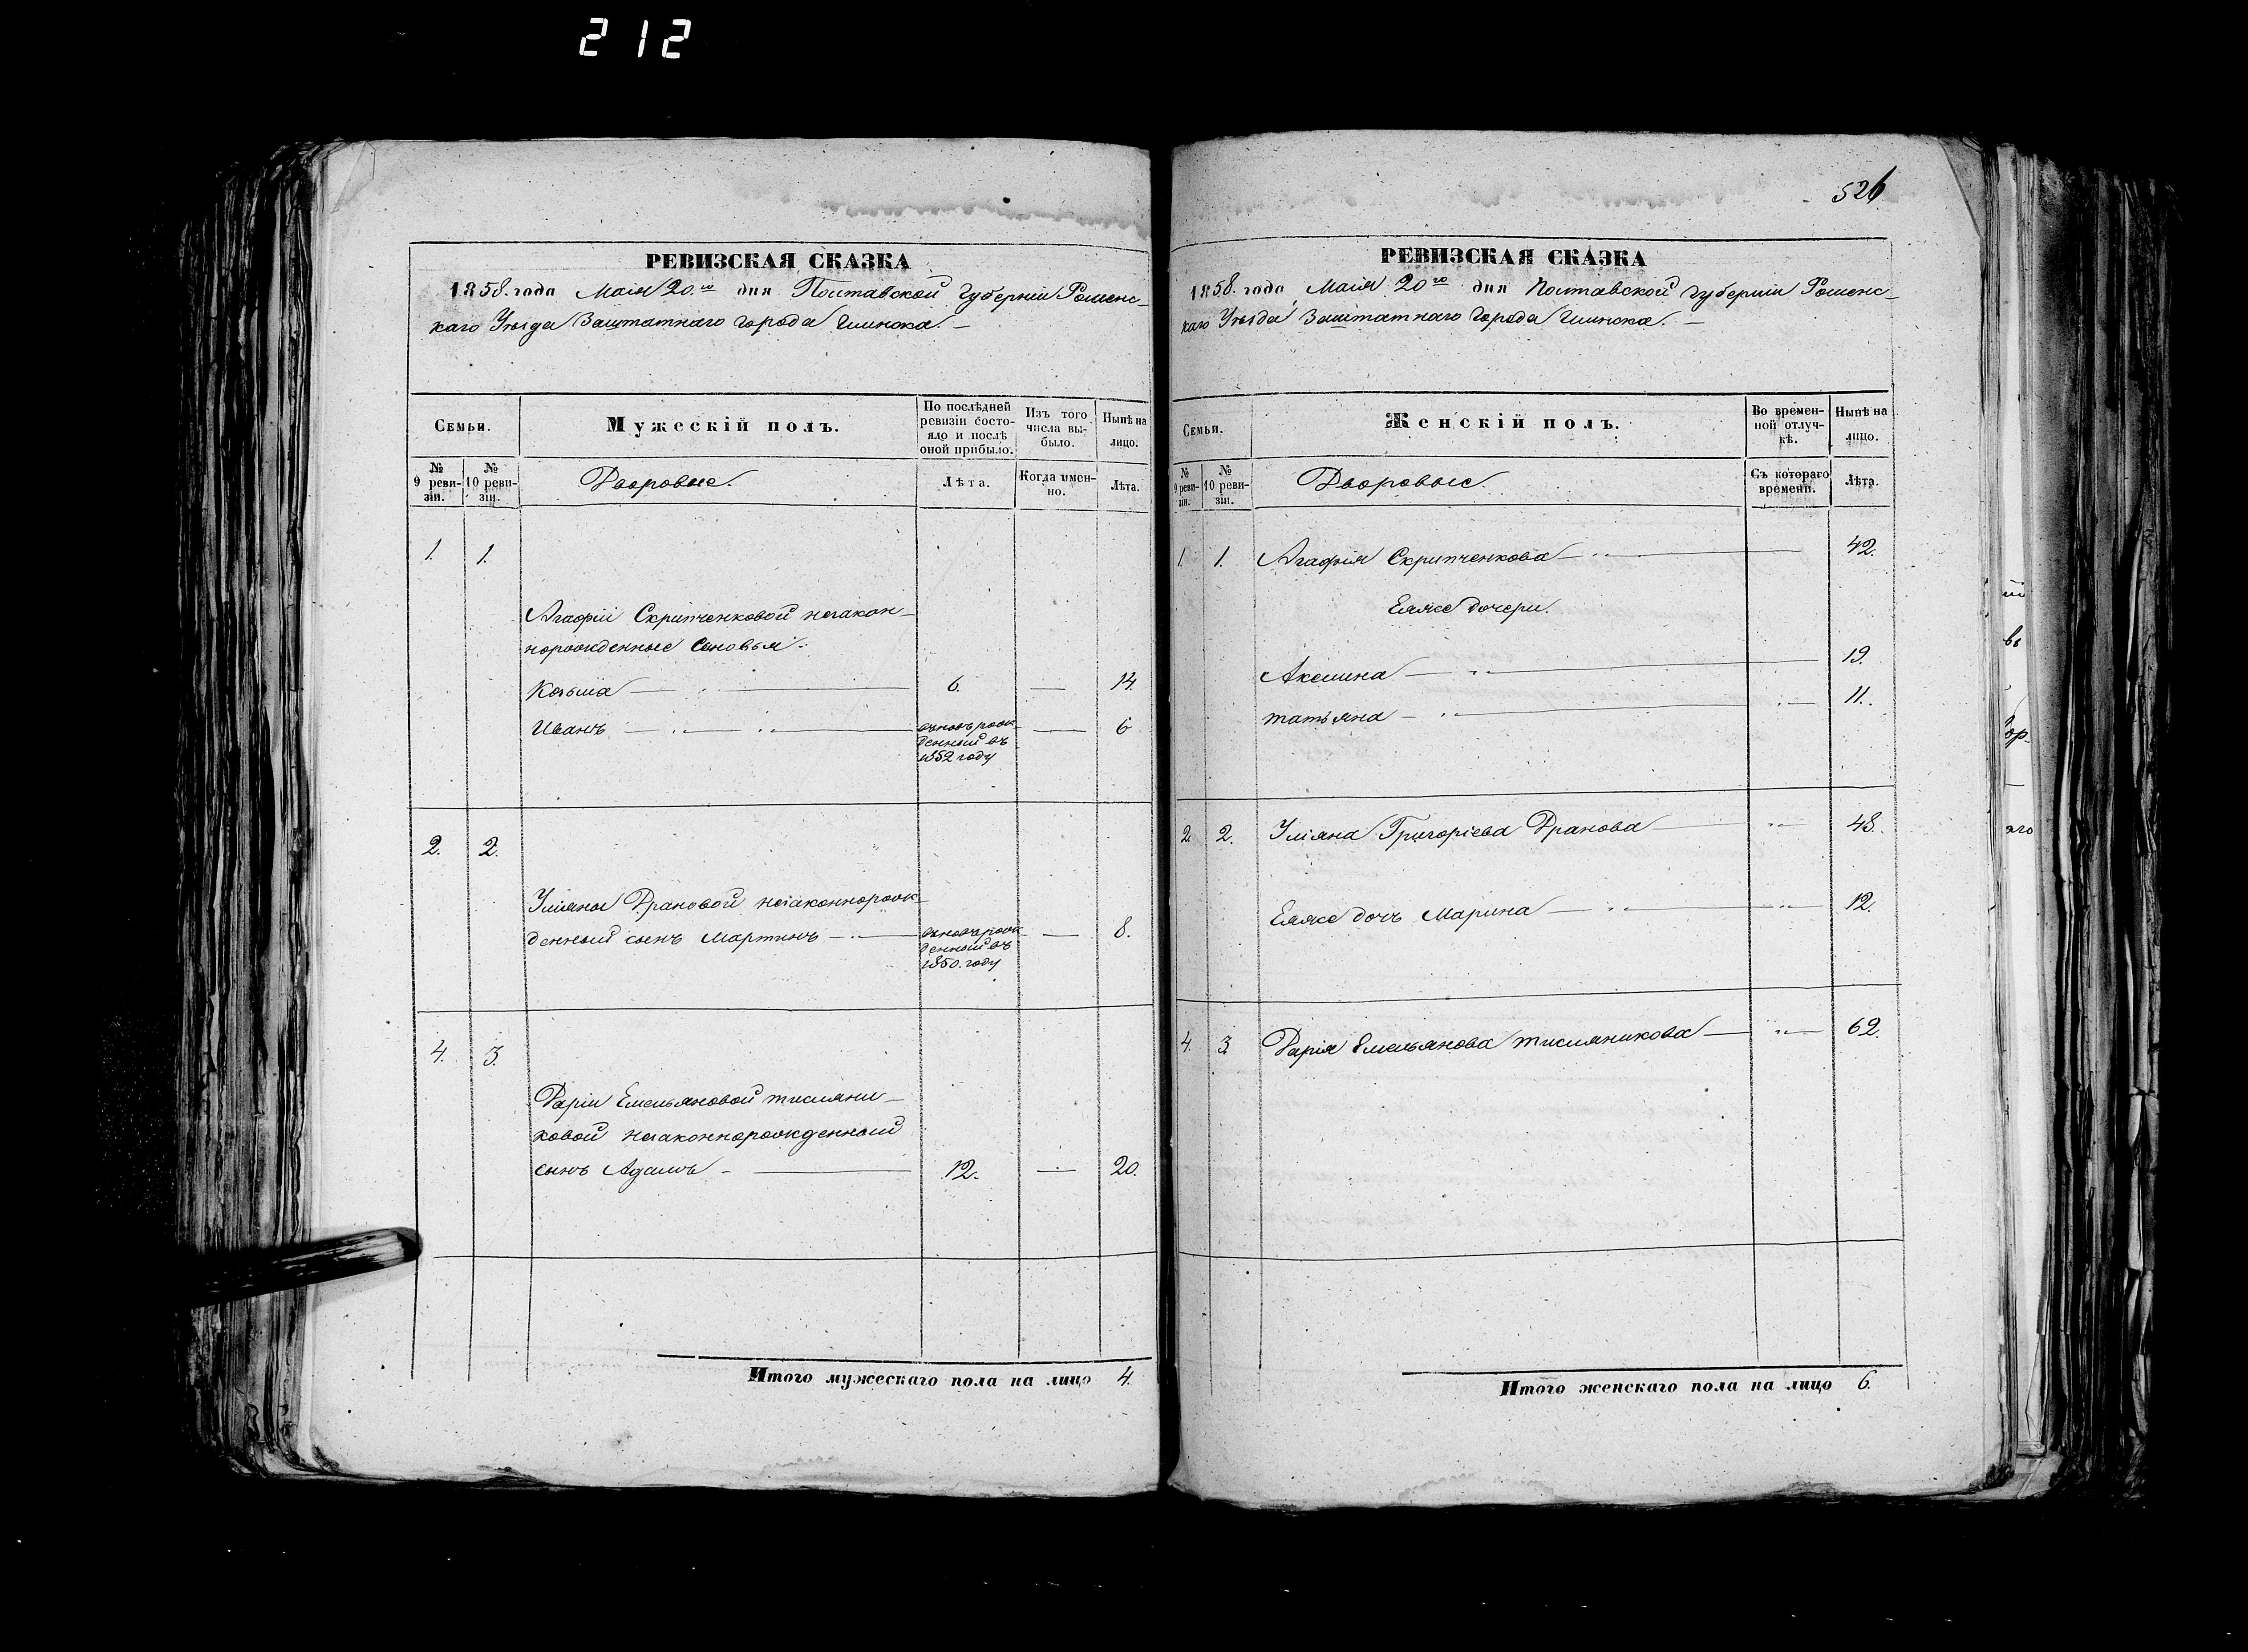 212
РЕВИЗСКАЯ СКАЗКА
1858. года Маія 20.го дня Полтавской Губерніи Роменс-
каго Уѣзда Заштатнаго города Глинска. –
Семьи.
Мужескій полъ.
По послѣдней
ревизіи состо-
яло и послѣ
оной прибыло.
Изъ того
числа вы-
было.
Нынѣ на
лицо.
№
9 реви-
зіи.
№
10 реви-
зіи.
Дворовые.
Лѣта.
Когда имен-
но.
Лѣта.
1. 1.
Агафіи Скрипченковой незакон-
норожденные Сыновья:
Козьма 6. — 14.
Иванъ — 6
вновь рож
денный въ
1852 году
2. 2.
Уліяны Драновой незаконнорож-
денный сынъ Мартинъ — 8.
вновь рож
денный въ
1850. году
4. 3.
Даріи Емельяновой тисляни-
ковой незаконнорожденный
сынъ Адамъ — 12. — 20.
Итого мужескаго пола на лицо 4.
526
РЕВИЗСКАЯ СКАЗКА
1858. года Маія 20го дня Полтавской Губерніи Роменс-
каго Уѣзда Заштатнаго Города Глинска. –
Семьи.
Женскій полъ.
Во времен-
ной отлуч-
кѣ.
Нынѣ на
лицо.
№
9 реви-
зіи.
№
10 реви-
зіи.
Дворовые.
Съ котораго
времени.
Лѣта.
1. 1. Агафія Скрипченкова — 42.
Еяже дочери.
Аксинна — 19.
татьяна — 11.
2. 2. Уліяна Григоріева Дранова — 48.
Еяже дочь Марина — 12.
4. 3. Дарія Емельянова тисляникова — 62.
Итого женскаго пола на лицо 6.